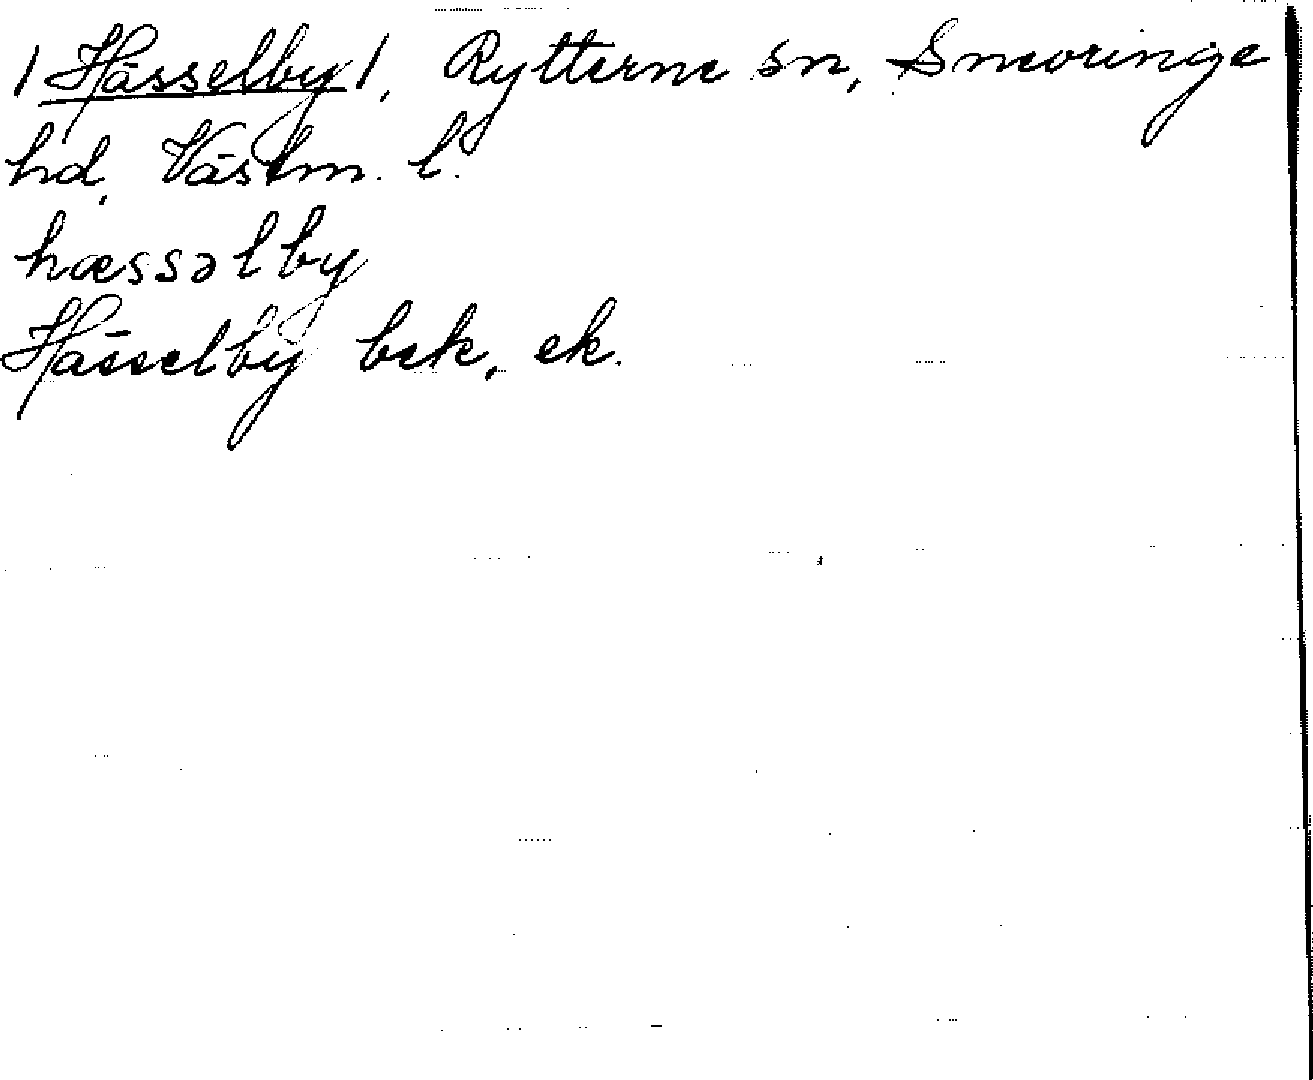 /Hässelby/, Rytterne sn, Snevringe
hd, Västm. l.
hæssəlby
Hässelby bek, ek.